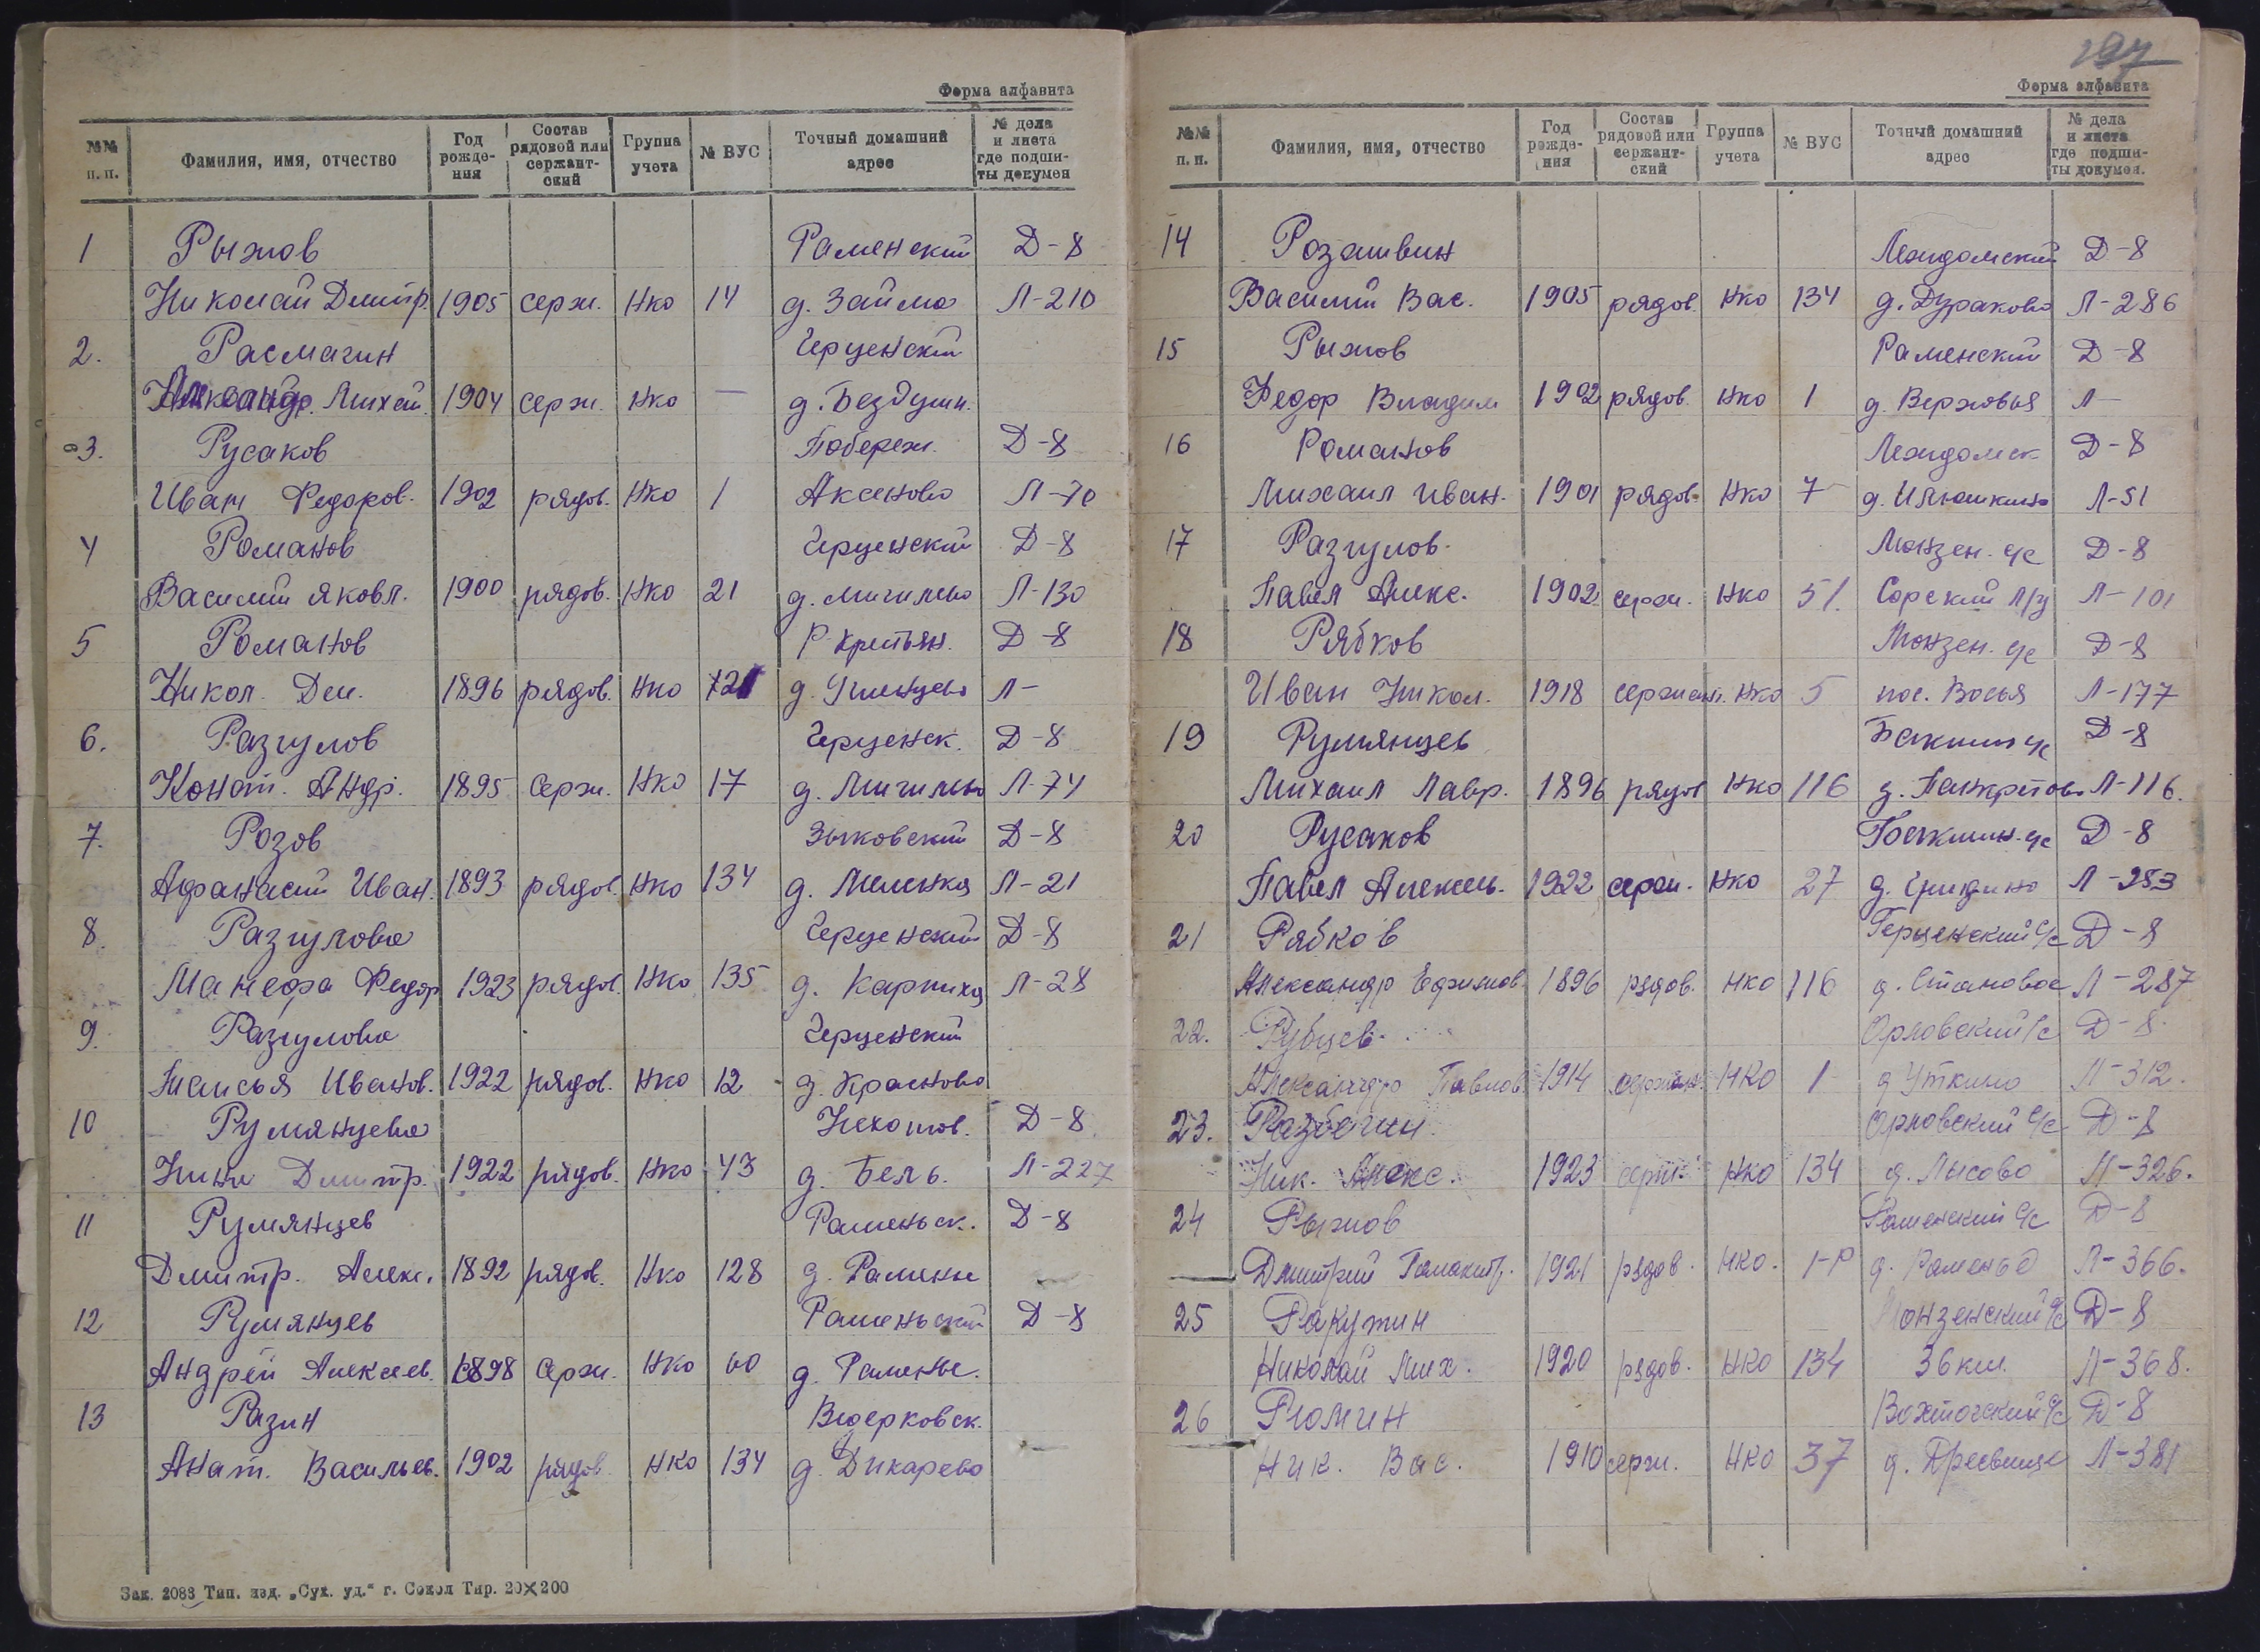 Форма алфавита
№№ п. п. | Фамилия, имя, отчество | Год рожде- ния | Состав рядовой или сержант- ский | Группа учета | № ВУС | Точный домашний адрес | № дела и листа где подши- ты докумен
1 Рыжов Раменский Д-8
Николай Дмитр. 1905 серж. НКО 14 д. Займа Л-210
2. Расмагин Герценский
Михай. 1904 серж. НКО — д. Бездушн.
3. Русаков Побереж. Д-8
Иван Федоров. 1902 рядов. НКО 1 Аксеново Л-70
4 Романов Герценский Д-8
Василий Яковл. 1900 рядов. НКО 21 д. Мигильво Л-130
5 Романов Д-8
Никол. Дем. 1896 рядов. НКО 121 Л-
6. Разгулов Герценск. Д-8
Конст. Андр. 1895 Серж. НКО 17 Л-74
7. Розов Зыковский Д-8
Афанасий Иван. 1893 рядов. НКО 134 д. Меленка Л-21
8. Разгулова Герценский Д-8
Манефа Федор 1923 рядов. НКО 135 д. Карпиха Л-28
9. Разгулова Герценский
Таисья Иванов. 1922 рядов. НКО 12 д. Краеново
10 Румянцева Д-8
Нина Дмитр. 1922 рядов. НКО 43 д. Бель. Л-227
11 Румянцев Раменьск. Д-8
Дмитр. Алекс. 1892 рядов. НКО 128 д. Раменье
12 Румянцев Раменьский Д-8
Андрей Алексеев. 1898 серж. НКО 60 д. Раменье.
13 Разин Ведерковск.
Анат. Васильев. 1902 рядов. НКО 134 д. Дикарево
Зак. 2083 Тип. изд. „Сух. уд.“ г. Сокол Тир. 20×200
297
Форма алфавита
№№ п. п. | Фамилия, имя, отчество | Год рожде- ния | Состав рядовой или сержант- ский | Группа учета | № ВУС | Точный домашний адрес | № дела и листа где подши- ты докумен.
14 Розашвин Леждомский Д-8
Василий Вас. 1905 рядов. НКО 134 д. Дураково Л-286
15 Рыжов Раменский Д-8
Федор Владим 1902 рядов. НКО 1 д. Верховья Л-
16 Романов Леждомск Д-8
Михаил Иван. 1901 рядов. НКО 7 д. Илюшкино Л-51
17 Разгулов. Монзен. с/с Д-8
Павел Алекс. 1902 серж. НКО 51. Сорский л/з Л-101
18 Рябков Монзен. с/с Д-8
Иван Никол. 1918 сержант. НКО 5 пос. Вохья Л-177
19 Румянцев Бакшин с/с Д-8
Михаил Лавр. 1896 рядов НКО 116 д. Панкратово Л-116.
20 Русаков Бакшин. с/с Д-8
Павел Алексеев. 1922 серж. НКО 27 д. Гридино Л-283
21 Рябков Герценский с/с Д-8
Александр Ефимов. 1896 рядов. НКО 116 д. Становое Л-287
22. Рубцев. Орловский с/с Д-8.
Александр Павлов. 1914 сержан. НКО 1 д Уткино Л-312.
23. Разбегин. Орловский с/с Д-8
Ник. Алекс. 1923 серж. НКО 134 д. Лысово Л-326.
24 Рыжов Раменский с/с Д-8
Дмитрий 1921 рядов. НКО. 1-Р д. Раменье Л-366.
25 Ракутин Монзенский с/с Д-8
Николай Мих. 1920 рядов. НКО 134 36 км. Л-368.
26 Рюмин Вохтогский с/с Д-8
Ник. Вас. 1910 серж. НКО 37 Л-381